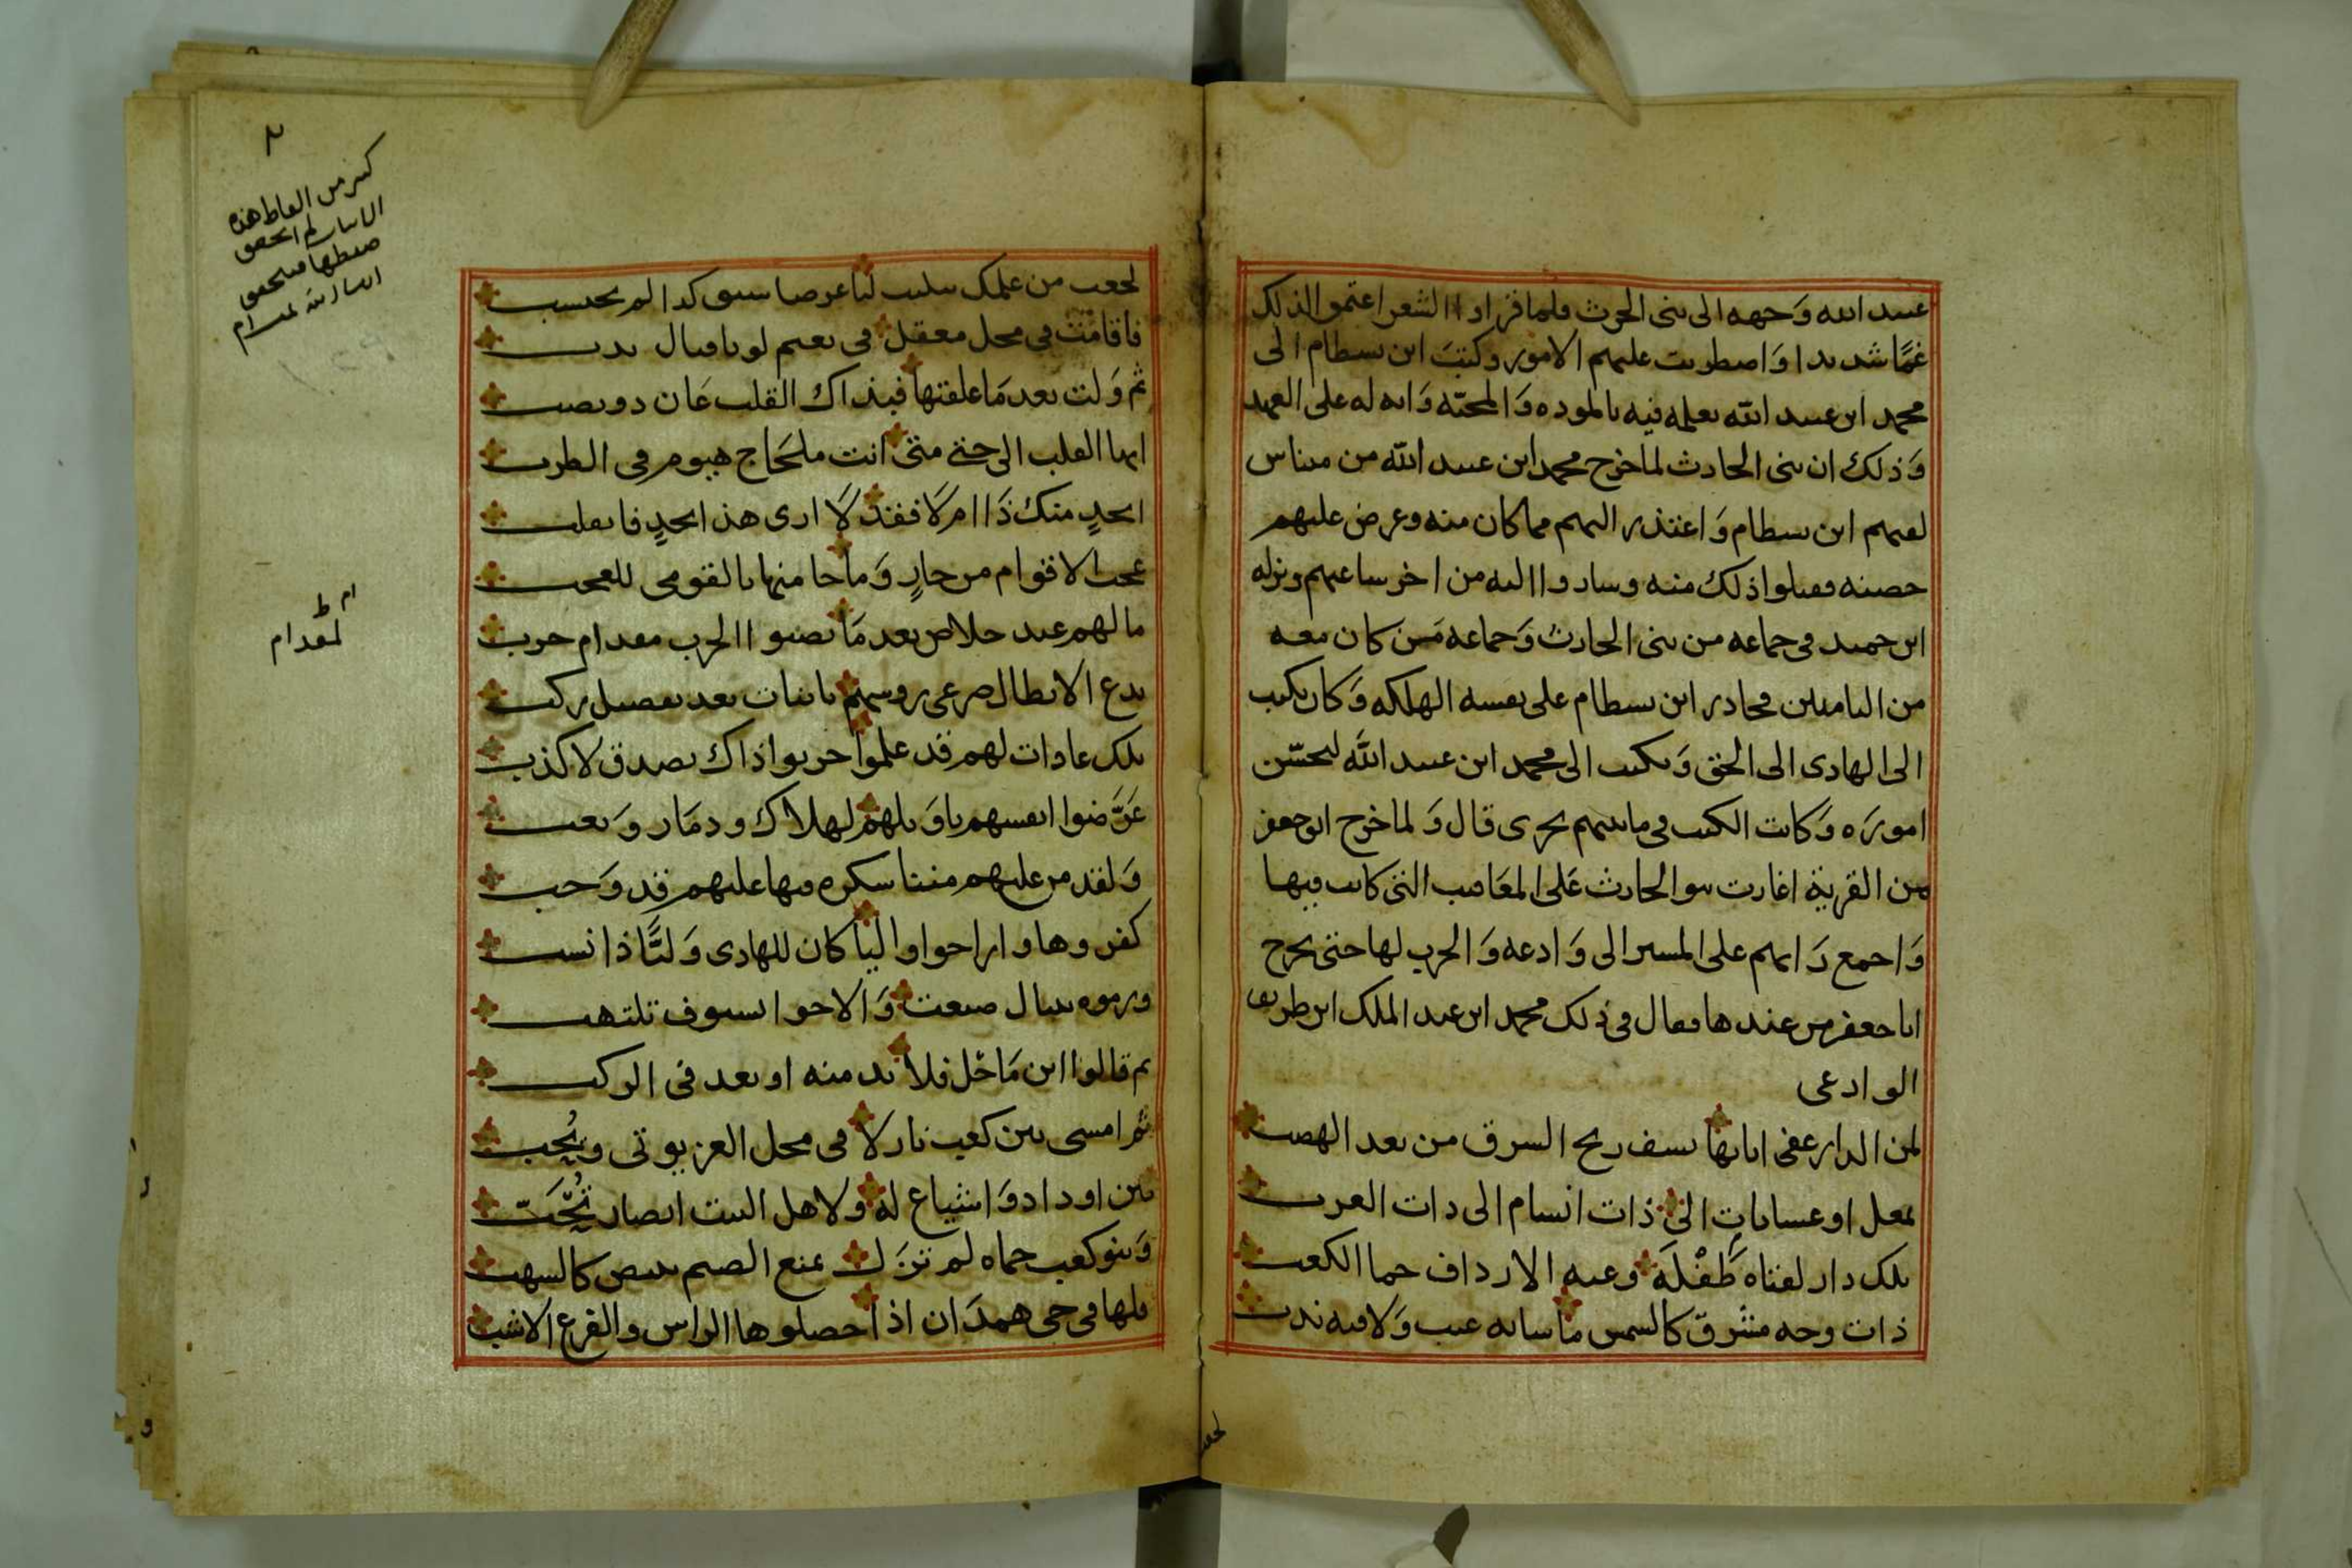 عبيد الله وَجهه الى بنى الحرث فلما قراوا الشعر اغتموا لذلك
غمًّا شديدا وَاضطربت عليهم الامور وكتبَ ابن بسطام الى
محمد ابن عبيد الله يعلمه فيه بالموده وَالمحبّه وَانه له على العهد
وَذلك ان بنى الحارث لما خرج محمد ابن عبيد الله من ميناس
لقيهم ابن بسطام وَاعتذر اليهم مما كان منه وعرض عليهم
حصنه فقبلوا ذلك منه وساروا اليه من اخر ساعتهم ونزله
ابن حميد فى جماعه من بنى الحارث وَجماعه مَمن كان معه
من الياميين فحاذر ابن بسطام على نفسه الهلكه وَكان يكتب
الى الهادى الى الحق وَيكتب الى محمد ابن عبيد الله ليحسّن
امورَه وَكانت الكتب فى ما بينهم تجرى قال وَلما خرج ابو جعفر
من القرية اغارت بنو الحارث عَلى المعَاقب التى كانت فيها
وَاجمع رَايهم على المسير الى وَادعه وَالحرب لها حتى يخرج
ابا جعفر من عندها فقال فى ذلك محمد ابن عبد الملك ابن طريف
الوادعى
لمن الدار عفى اياتها نسف ريح الشرق من بعد الهضب
بمعل او عسابات الى ذات انسام الى ذات العرب
تلك دار لفتاه طَفْلَه وعبه الارداف جما الكعب
ذات وجه مشرق كالشمس ما شانه عيب وَلا فيه ندب
فاقامَت فى محل معقل فى نعيم لو باقبال يدب
ثم وَلت بعد مَا علقتها فبذاك القلب عَان ذو نصب
ايها القلب الى حتى متى انت ملحَاج هيوم فى الطرب
ابجدٍ منك ذَا ام لَا فقد لَا ارى هذا بجدٍ فانقلب
عجب الاقوام من جارٍ وَما جا منها يا لقومى للعجب
ما لهم عند خلاص بعد مَا نصبوا الحرب مقدام حرب
يدع الابطال صرعى روسهم باينات بعد تفصيل ركب
تلك عادات لهم قد علموا جربوا ذاك بصدق لا كذب
عَرَّضوا انفسهم يا وَيلهم لهلاك ودمَار وَتعب
وَلقد مر عليهم مننا سكره فيها عليهم قد وَجب
كفروها وارا حواوا ليا كان للهادى وَليًّا ذا نسب
ورموه بنبال صنعت وَالاحوا بسيوف تلتهب
ثم قالوا اين مَا حَل فلا بد منه او بعد فى الركب
ثم امسى بين كعب نازلا فى محل العز يوتى ويُجب
بين اوداد وَاشياع له ولاهل البيت انصار نُجُب
وَبنو كعب حماه لم تزَل تمنع الضيم ببيض كالشهب
فلها فى حى همدَان اذا حصلوها الراس والفرع الاشب
كثير من الفاظ هذه
الابيات لم اتحقق
ضبطها فيحقق
ان شا الله